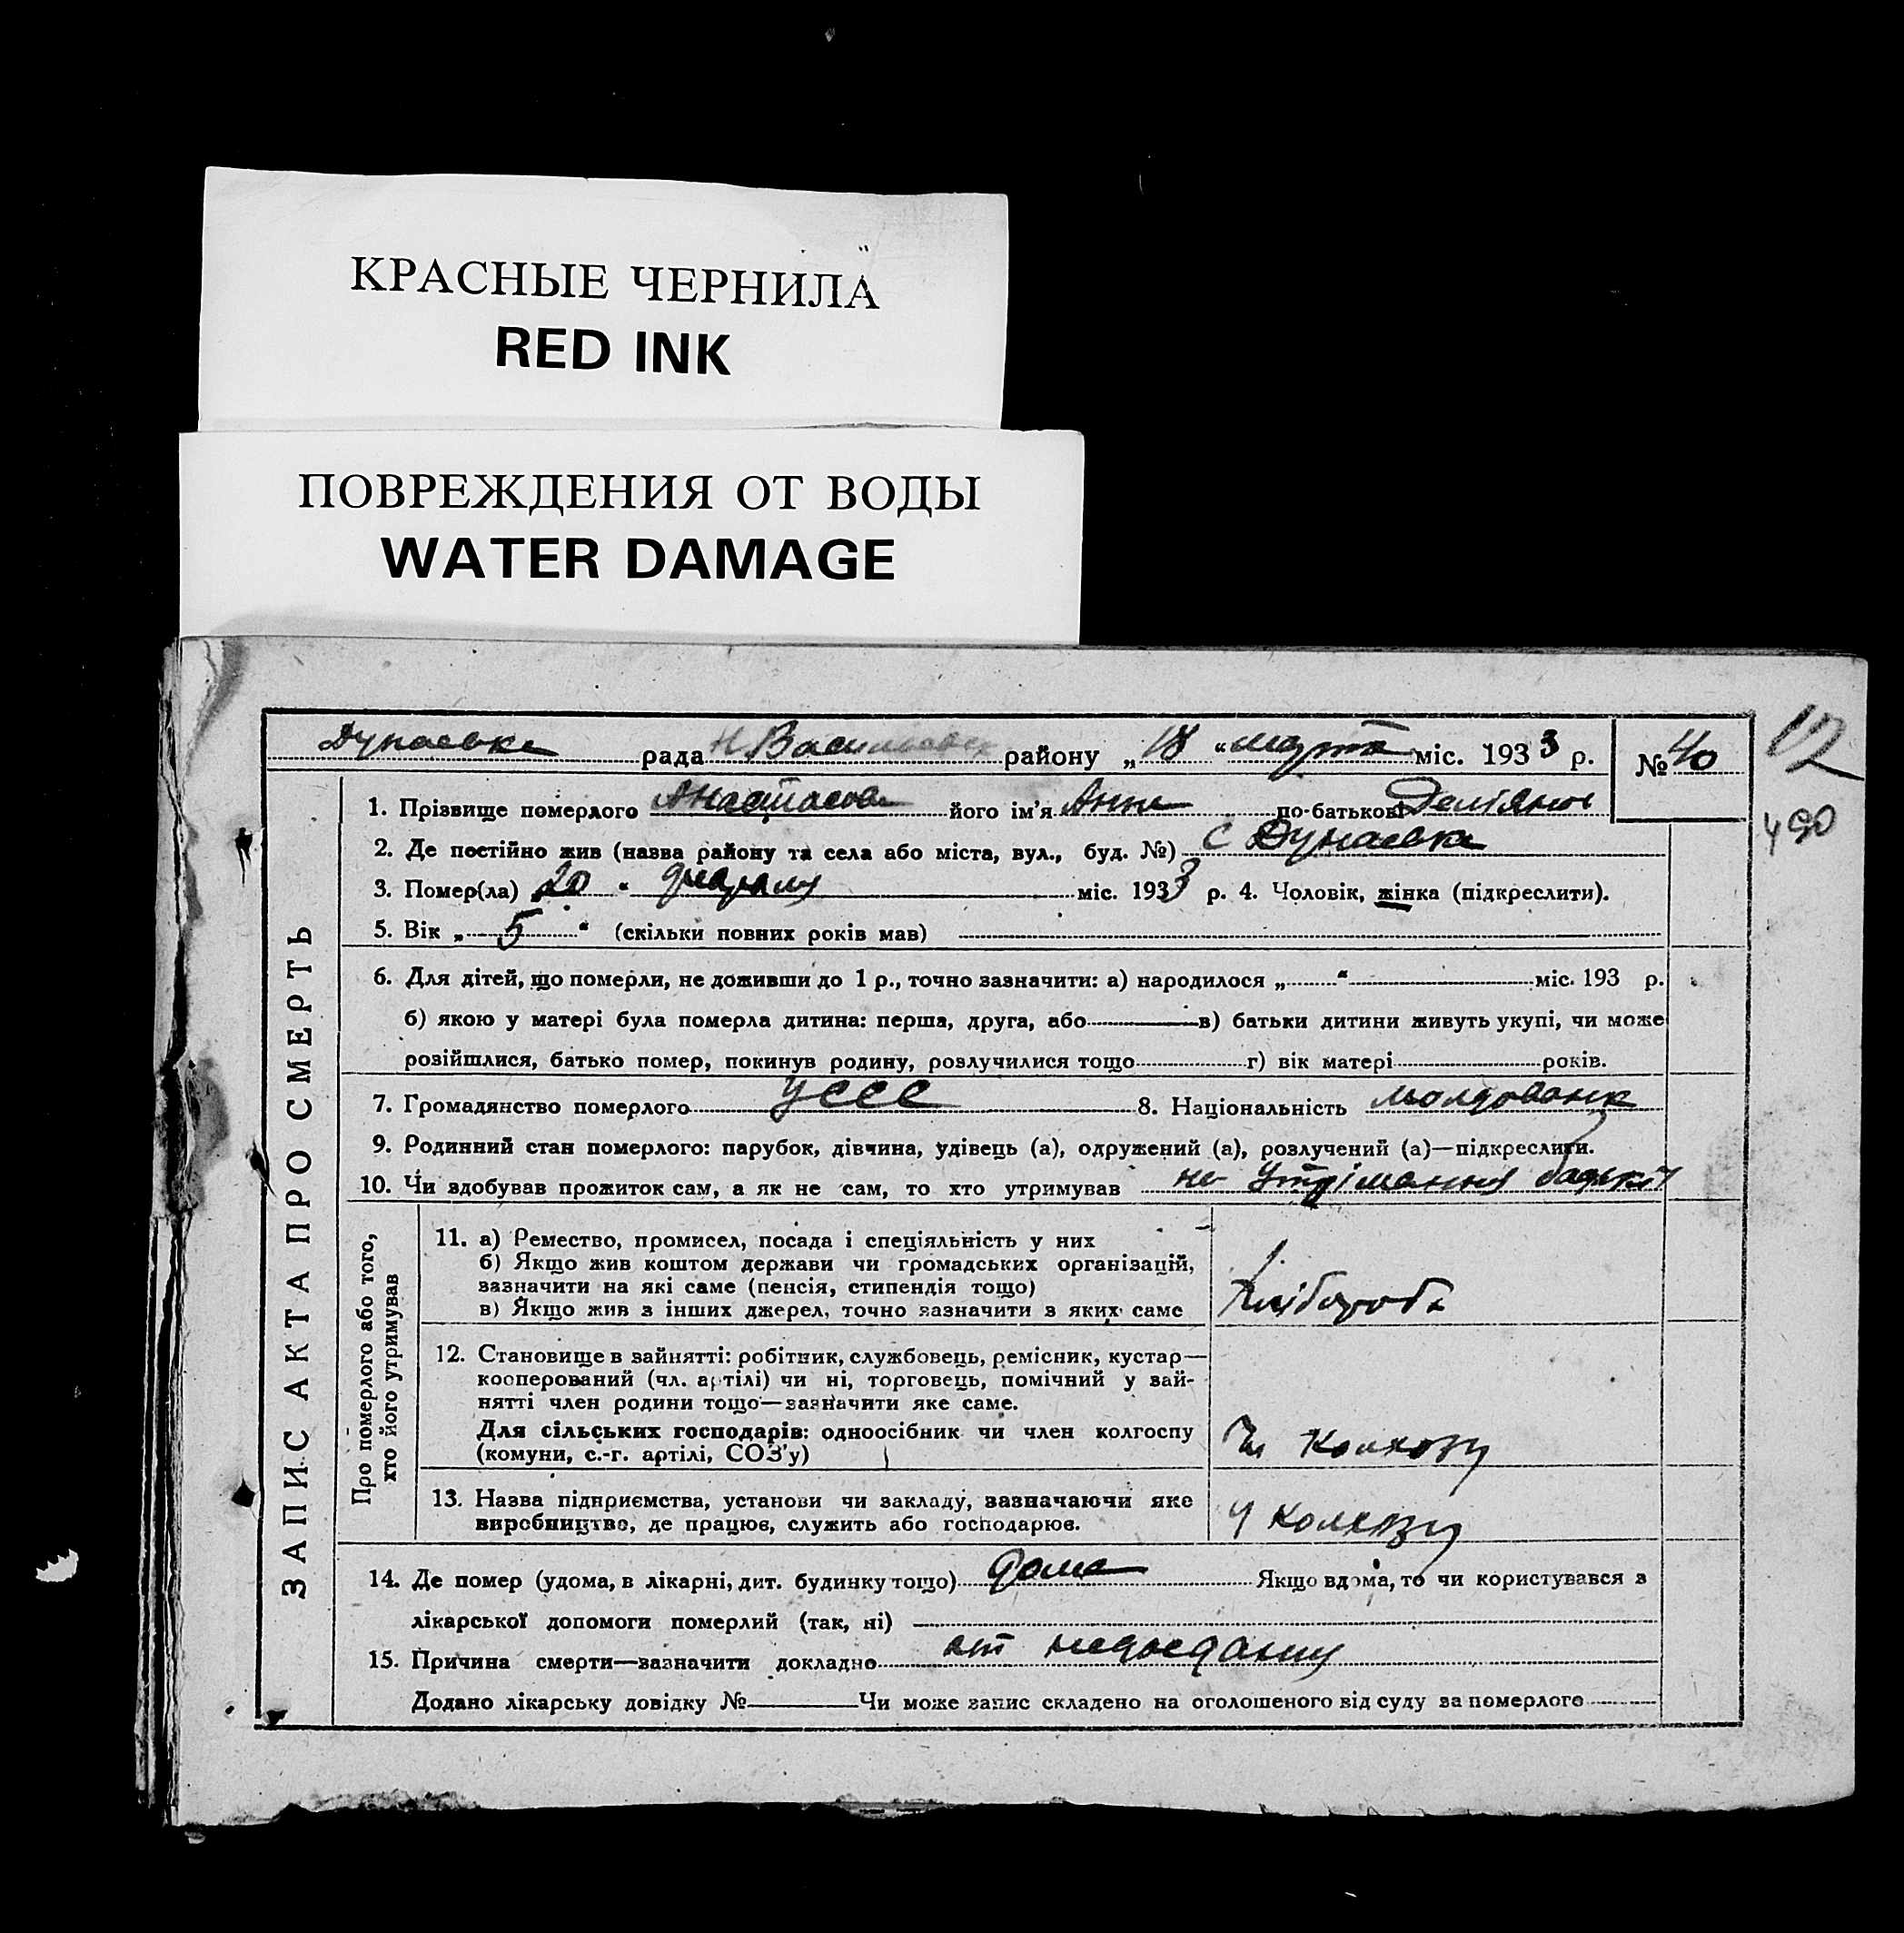 КРАСНЫЕ ЧЕРНИЛА
RED INK
ПОВРЕЖДЕНИЯ ОТ ВОДЫ
WATER DAMAGE
12
490
ЗАПИС АКТА ПРО СМЕРТЬ
Дунаевка рада Н. Васильевск району „18 “ марта міс. 1933 р. № 40
1. Прізвище померлого Анастасова його ім'я Анна по-батькові
2. Де постійно жив (назва району та села або міста, вул., буд. №) С Дунаевка
3. Помер(ла) 20 “ міс. 1933 р. 4. Чоловік, жінка (підкреслити).
5. Вік „ 5 “ (скільки повних років мав)
6. Для дітей, що померли, не доживши до 1 р., точно зазначити: а) народилося „ “ міс. 193 р.
б) якою у матері була померла дитина: перша, друга, або в) батьки дитини живуть укупі, чи може
розійшлися, батько помер, покинув родину, розлучилися тощо г) вік матері років.
7. Громадянство померлого УССС 8. Національність молдованк
9. Родинний стан померлого: парубок, дівчина, удівець (а), одружений (а), розлучений (а)—підкреслити.
10. Чи здобував прожиток сам, а як не сам, то хто утримував на утріманния
Про померлого або того,
хто його утримував
11. а) Ремество, промисел, посада і спеціяльність у них
б) Якщо жив коштом держави чи громадських організацій,
зазначити на які саме (пенсія, стипендія тощо)
в) Якщо жив з інших джерел, точно зазначити з яких саме
Хлібороб
12. Становище в зайнятті: робітник, службовець, ремісник, кустар—
кооперований (чл. артілі) чи ні, торговець, помічний у зай-
нятті член родини тощо—зазначити яке саме.
Для сільських господарів: одноосібник чи член колгоспу
(комуни, с.-г. артілі, СОЗ'у)
Чл колхозу
13. Назва підприємства, установи чи закладу, зазначаючи яке
виробництво, де працює, служить або господарює.
у колхозу
14. Де помер (удома, в лікарні, дит. будинку тощо) дома Якщо вдома, то чи користувався з
лікарської допомоги померлий (так, ні)
15. Причина смерти—зазначити докладно от недоедания
Додано лікарську довідку № Чи може запис складено на оголошеного від суду за померлого